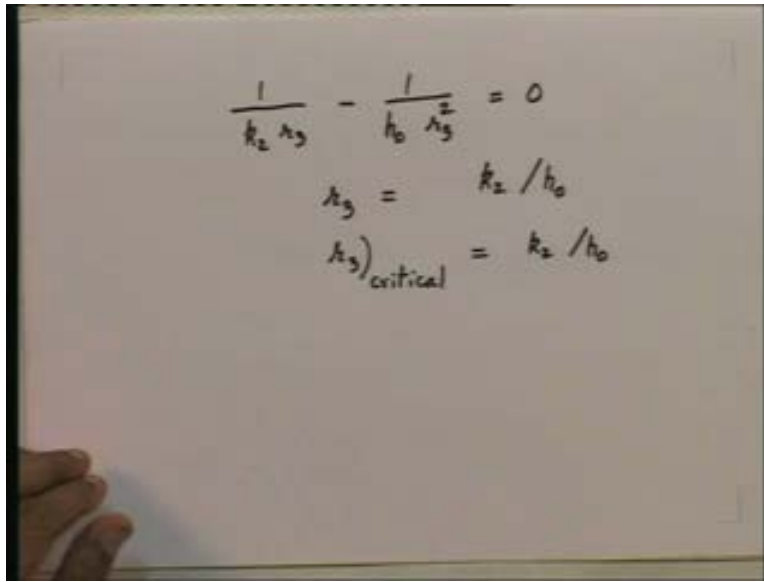 1/(k₂ r₃) - 1/(h₀ r₃²) = 0
r₃ = k₂ / h₀
r₃)critical = k₂ / h₀